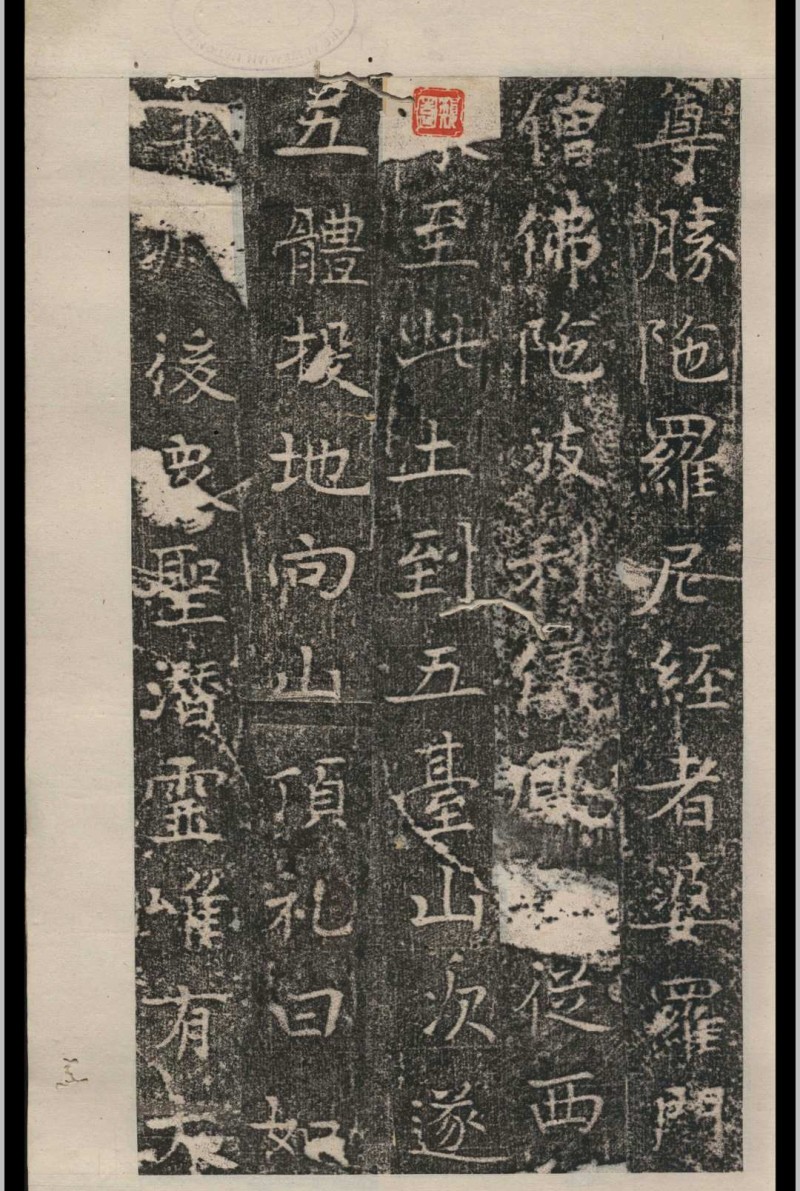 尊勝陁羅尼經者婆羅門
僧佛陁波利儀鳳從西
至此土到五臺山次遂
五體投地向山頂礼曰如
後衆聖潛靈唯有大